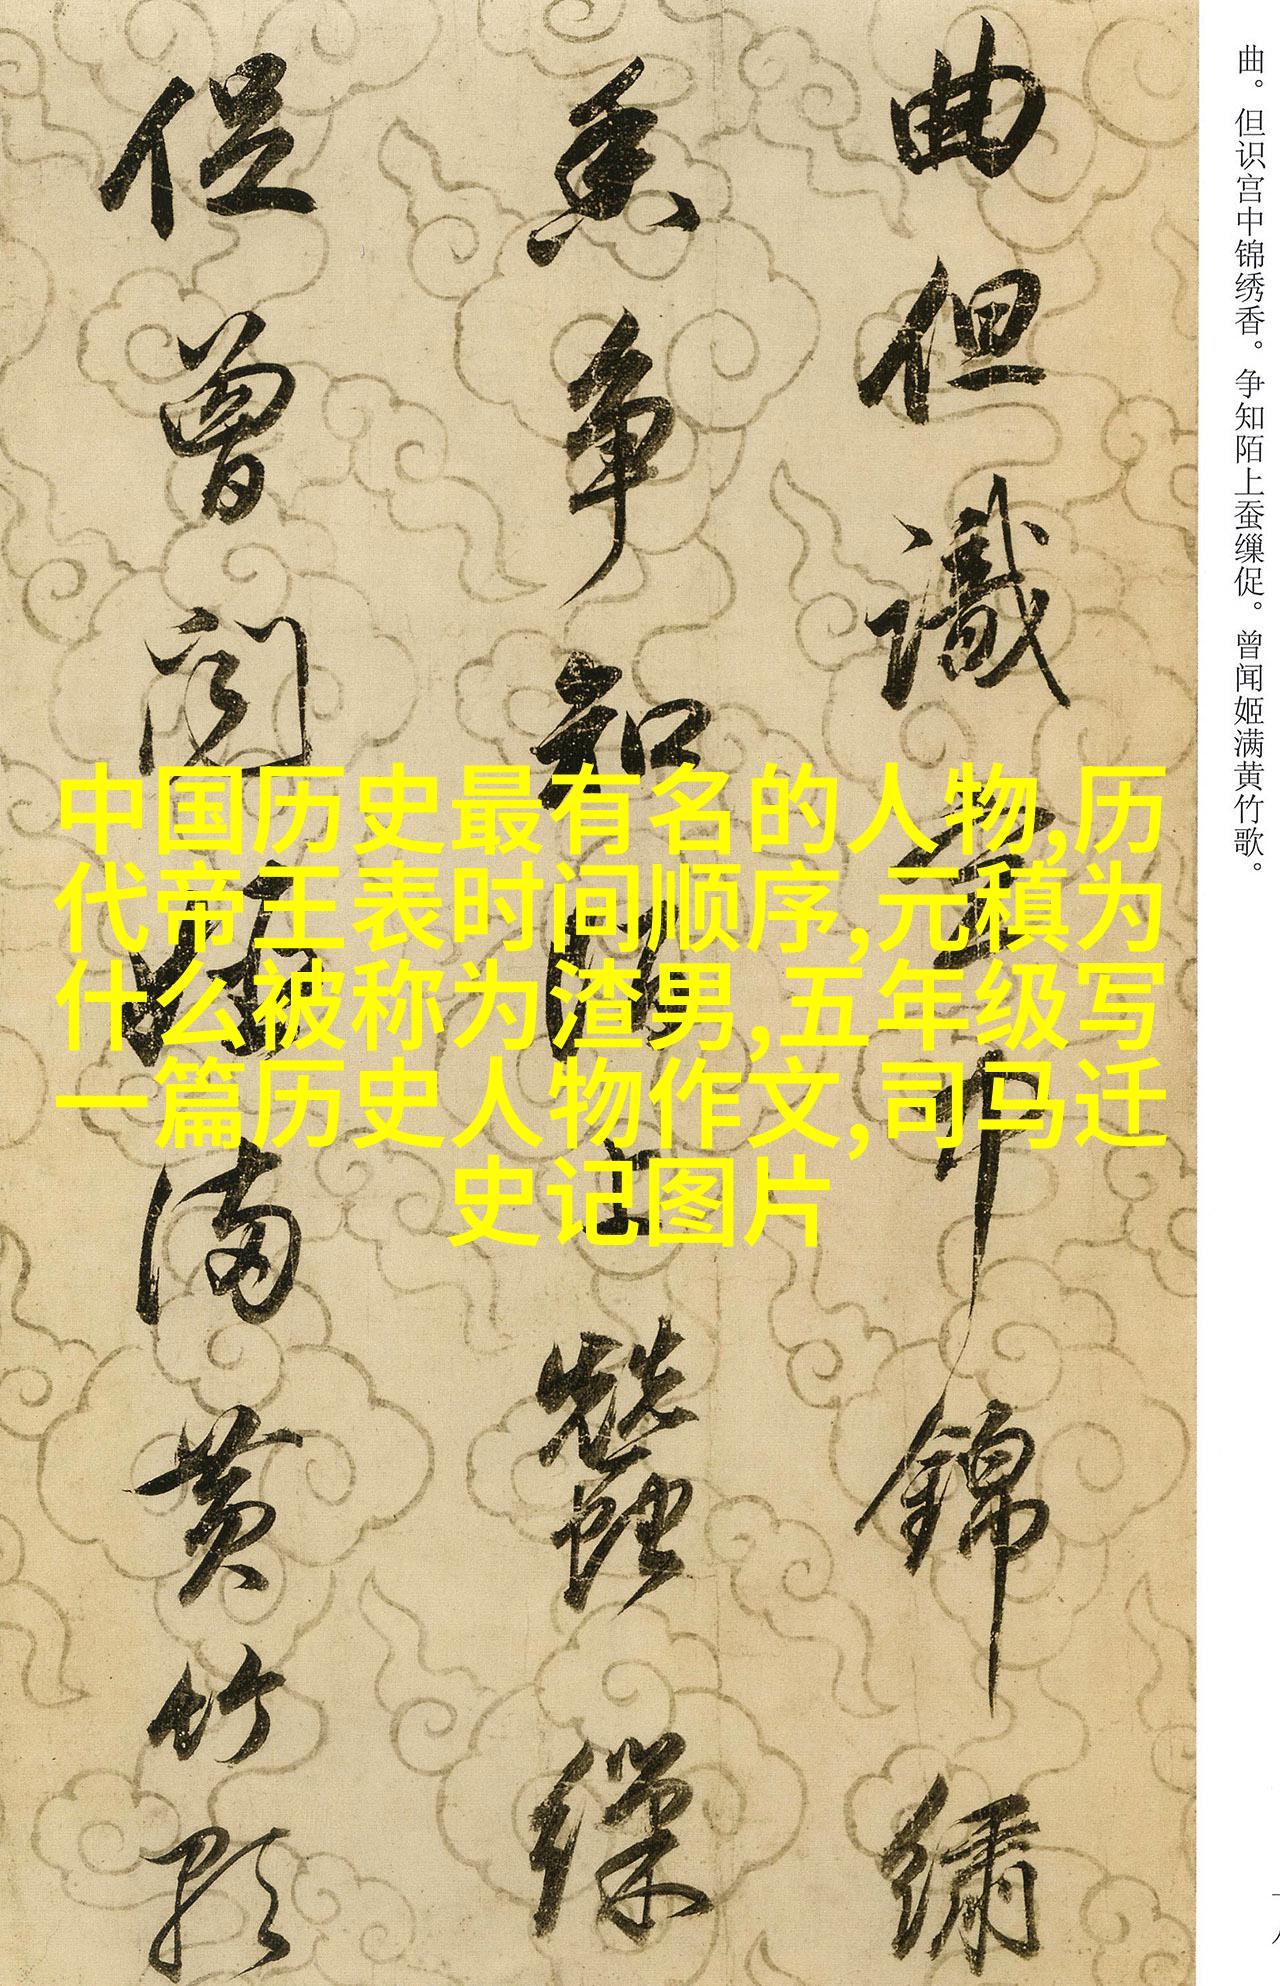 曲。但识宫中锦绣香。争知陌上蚕缫促。曾闻姬满黄竹歌。
曲但識宮中錦繡
香争知陌上蠶繅
促曾闻姬满黄竹歌
中国历史最有名的人物,历
代帝王表时间顺序,元稹为
什么被称为渣男,五年级写
一篇历史人物作文,司马迁
史记图片